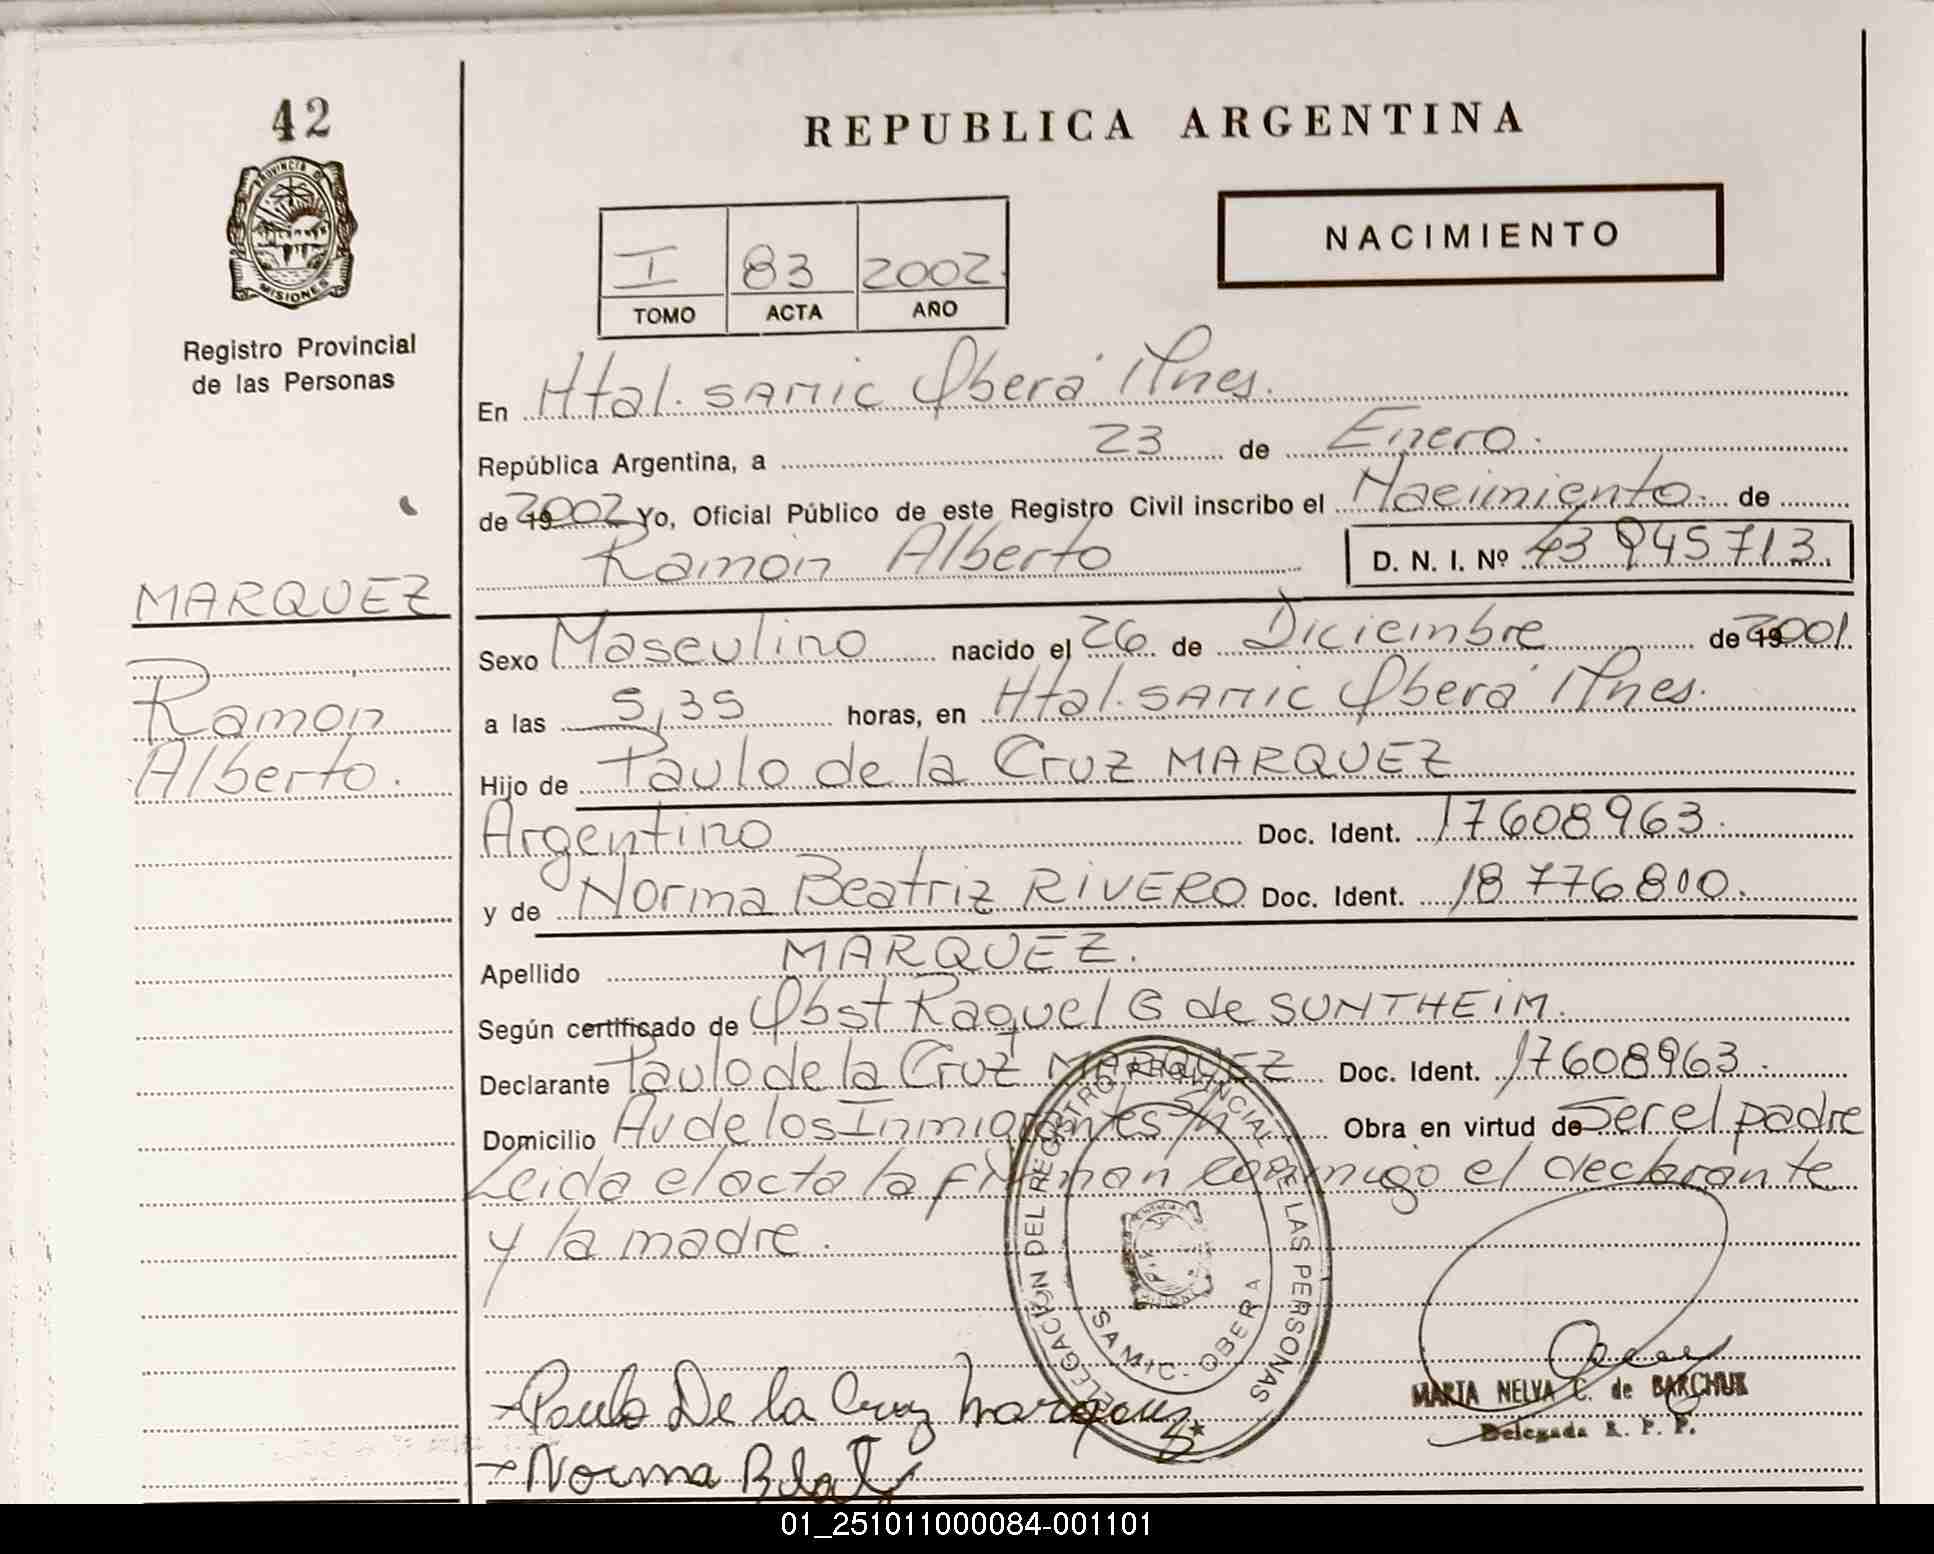 42
PROVINCIA D
MISIONES
Registro Provincial
de las Personas
REPUBLICA ARGENTINA
I 83 2002.
TOMO ACTA AÑO
NACIMIENTO
En Htal. SAMIC Oberá Mnes.
República Argentina, a 23 de Enero.
de 2002 Yo, Oficial Público de este Registro Civil inscribo el Nacimiento de
Ramón Alberto D. N. I. Nº 43 945713.
MARQUEZ
Ramon
Alberto.
Sexo Masculino nacido el 26 de Diciembre de 2001.
a las 5,35 horas, en Htal. SAMIC Oberá Mnes.
Hijo de Paulo de la Cruz MARQUEZ
Argentino Doc. Ident. 17608963.
y de Norma Beatriz RIVERO Doc. Ident. 18776810.
Apellido MARQUEZ.
Según certificado de Obst Raquel G de SUNTHEIM.
Declarante Paulo de la Cruz MARQUEZ Doc. Ident. 17608963.
Domicilio Av de los Inmigrantes S/n Obra en virtud de Ser el padre
Leida el acta la firman conmigo el declarante
y la madre.
DELEGACIÓN DEL REGISTRO PROVINCIAL DE LAS PERSONAS
SAMIC - OBERA
Paulo De la Cruz Marquez
Norma
MARTA NELVA C. de BARCHUK
Delegada R. P. P.
01_251011000084-001101